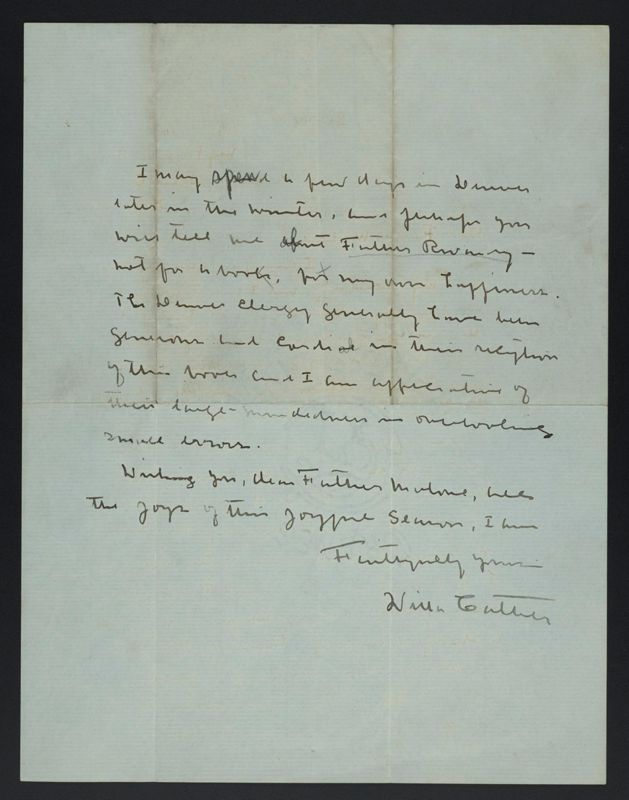 I may spend a few days in Denver
later in the winter, and perhaps you
will tell me about Father Raverdy —
not for a book, for my own happiness.
The Denver Clergy generally have been
generous and cordial in their reception
of this book and I am appreciative of
their large-mindedness in overlooking
small errors.
Wishing you, dear Father Malone, all
the joys of this Joyful Season, I am
Faithfully yours
Willa Cather